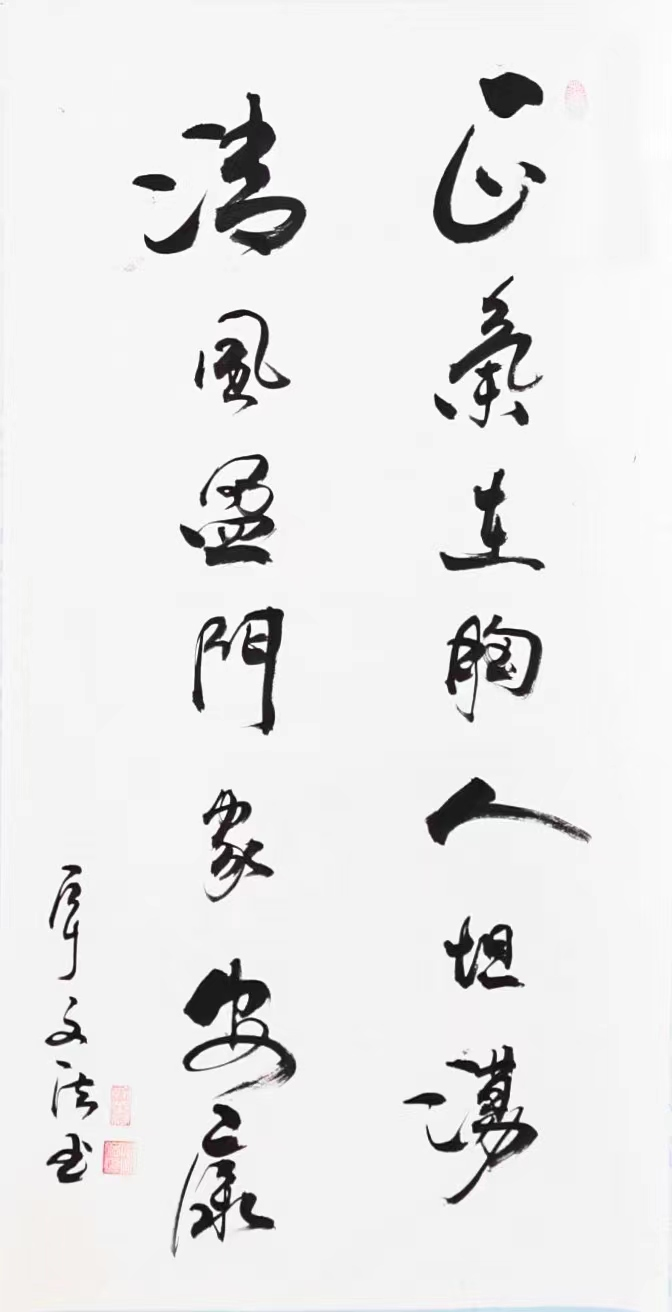 正氣在胸人坦蕩
清風盈門家安康
文法书